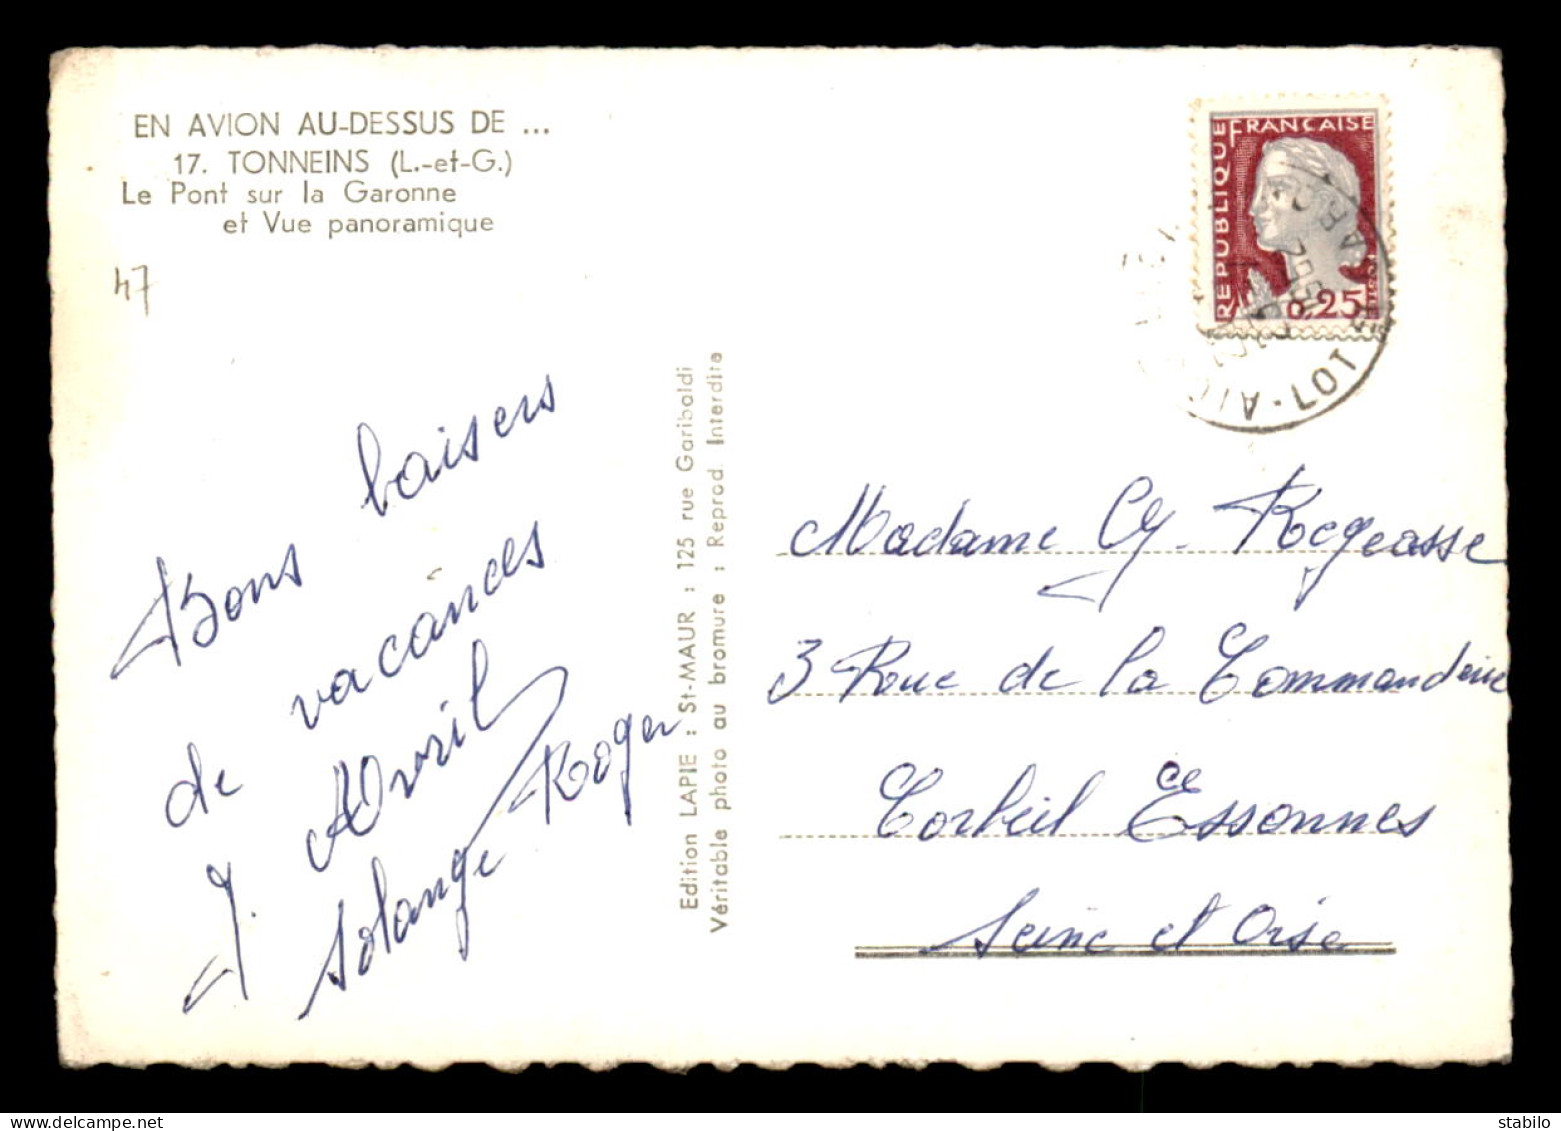 EN AVION AU-DESSUS DE ...
17. TONNEINS (L.-et-G.)
Le Pont sur la Garonne
et Vue panoramique
47
Bons baisers
de vacances
J. Avril
Solange Roger
Edition LAPIE : St-MAUR : 125 rue Garibaldi
Véritable photo au bromure : Reprod. Interdite
REPUBLIQUE
FRANÇAISE
0,25
POSTES
LOT-
Madame
3 Rue de la Commanderie
Corbeil Essonnes
Seine et Oise
delcampe.net
stbilo